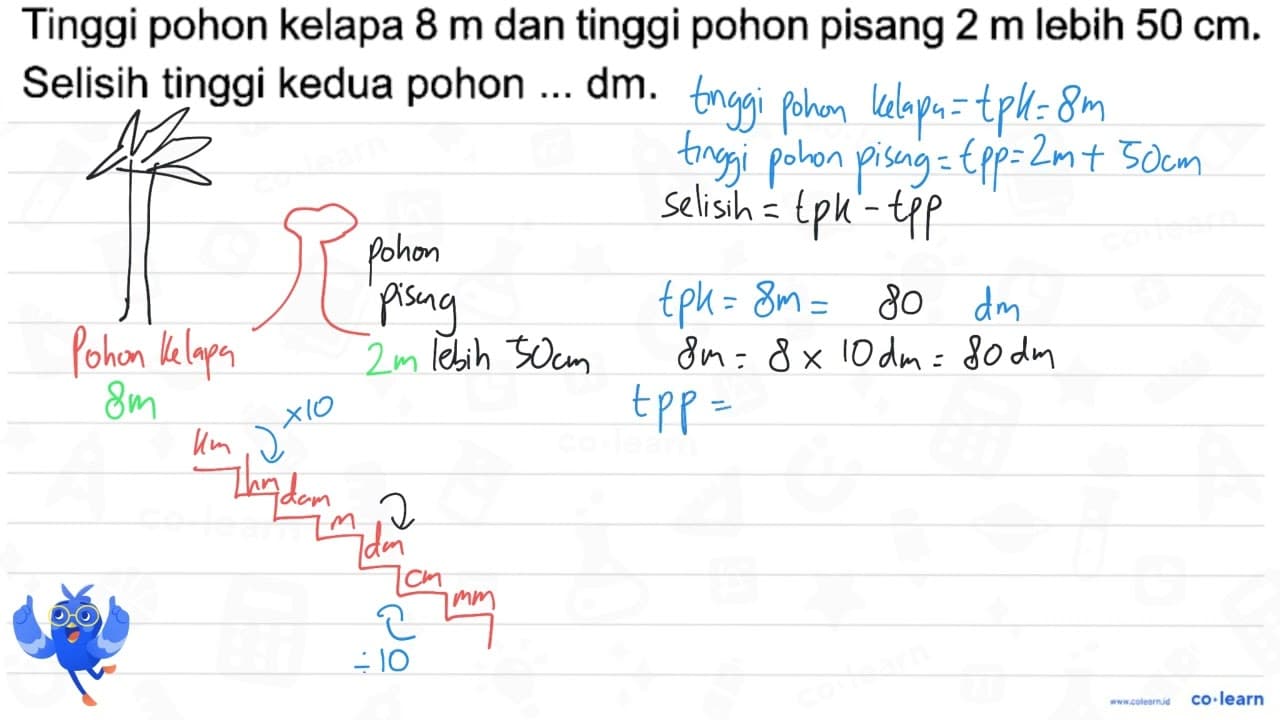 Tinggi pohon kelapa 8 m dan tinggi pohon pisang 2 m lebih 50 cm.
Selisih tinggi kedua pohon ... dm.
tinggi pohon kelapa = tpk = 8m
tinggi pohon pisang = tpp = 2m + 50cm
Selisih = tpk - tpp
pohon
pisang
2m lebih 50cm
Pohon Kelapa
8m
tpk = 8m = 80 dm
8m = 8 × 10 dm = 80 dm
tpp =
×10
km
hm
dam
m
dm
cm
mm
÷10
www.colearn.id
co·learn